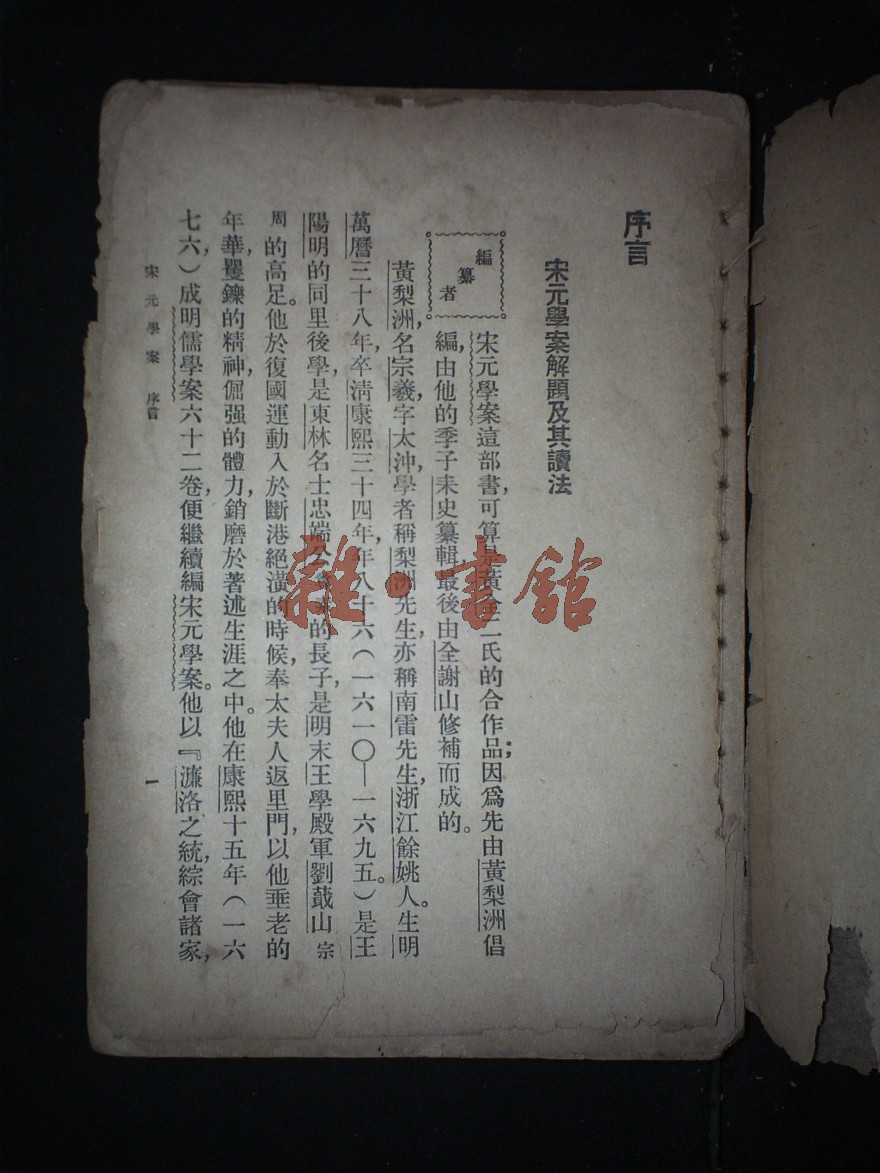 序言
宋元學案解題及其讀法
編纂者
宋元學案這部書，可算是黃全二氏的合作品；因爲先由黃梨洲倡
編，由他的季子耒史纂輯，最後由全謝山修補而成的。
黃梨洲，名宗羲，字太沖，學者稱梨洲先生，亦稱南雷先生，浙江餘姚人。生明
萬曆三十八年，卒淸康熙三十四年，年八十六（一六一〇—一六九五。）是王
陽明的同里後學，是東林名士忠端公的長子，是明末王學殿軍劉蕺山宗
周的高足。他於復國運動入於斷港絕潢的時候，奉太夫人返里門，以他垂老的
年華，矍鑠的精神，倔强的體力，銷磨於著述生涯之中。他在康熙十五年（一六
七六）成明儒學案六十二卷，便繼續編宋元學案。他以『濂洛之統，綜會諸家，
宋元學案 序言
一
雜·書館